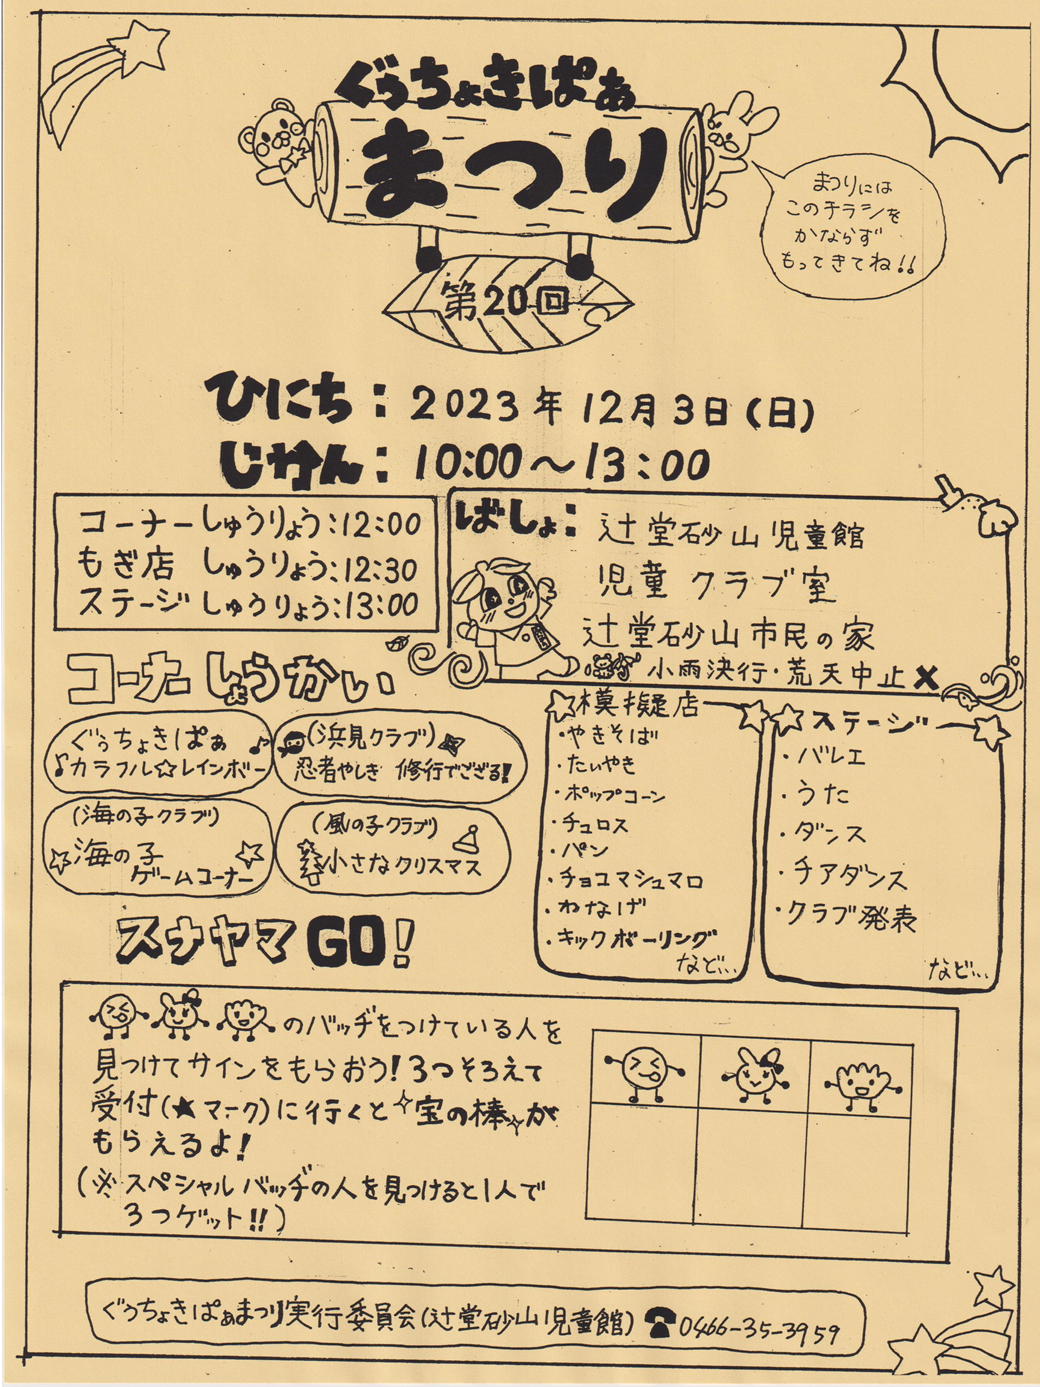 ぐぅちょきぱぁ
まつり
第20回
まつりには
このチラシを
かならず
もってきてね!!
ひにち：2023年12月3日(日)
じかん：10:00〜13:00
コーナーしゅうりょう:12:00
もぎ店 しゅうりょう:12:30
ステージしゅうりょう:13:00
ばしょ：辻堂砂山児童館
児童クラブ室
辻堂砂山市民の家
小雨決行・荒天中止✖
コーナーしょうかい
ぐぅちょきぱぁ
♪カラフル☆レインボー♪
(浜見クラブ)
忍者やしき 修行でござる!
(海の子クラブ)
海の子
ゲームコーナー
(風の子クラブ)
小さなクリスマス
模擬店
・やきそば
・たいやき
・ポップコーン
・チュロス
・パン
・チョコマシュマロ
・わなげ
・キックボーリング
など...
ステージ
・バレエ
・うた
・ダンス
・チアダンス
・クラブ発表
など...
スナヤマGO!
のバッヂをつけている人を
見つけてサインをもらおう!3つそろえて
受付(★マーク)に行くと宝の棒が
もらえるよ!
(※スペシャルバッヂの人を見つけると1人で
3つゲット!!)
ぐぅちょきぱぁまつり実行委員会(辻堂砂山児童館)☎0466-35-3959